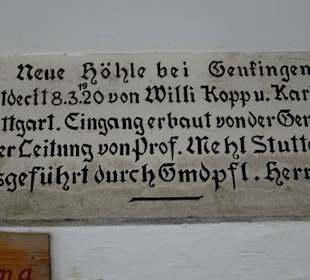 Neue Höhle bei Genkingen
tdeckt 8.3.1920 von Willi Kopp u. Kar
ttgart. Eingang erbaut von der Ger
er Leitung von Prof. Mehl Stutt
sgeführt durch Gmdpfl. Herr
na